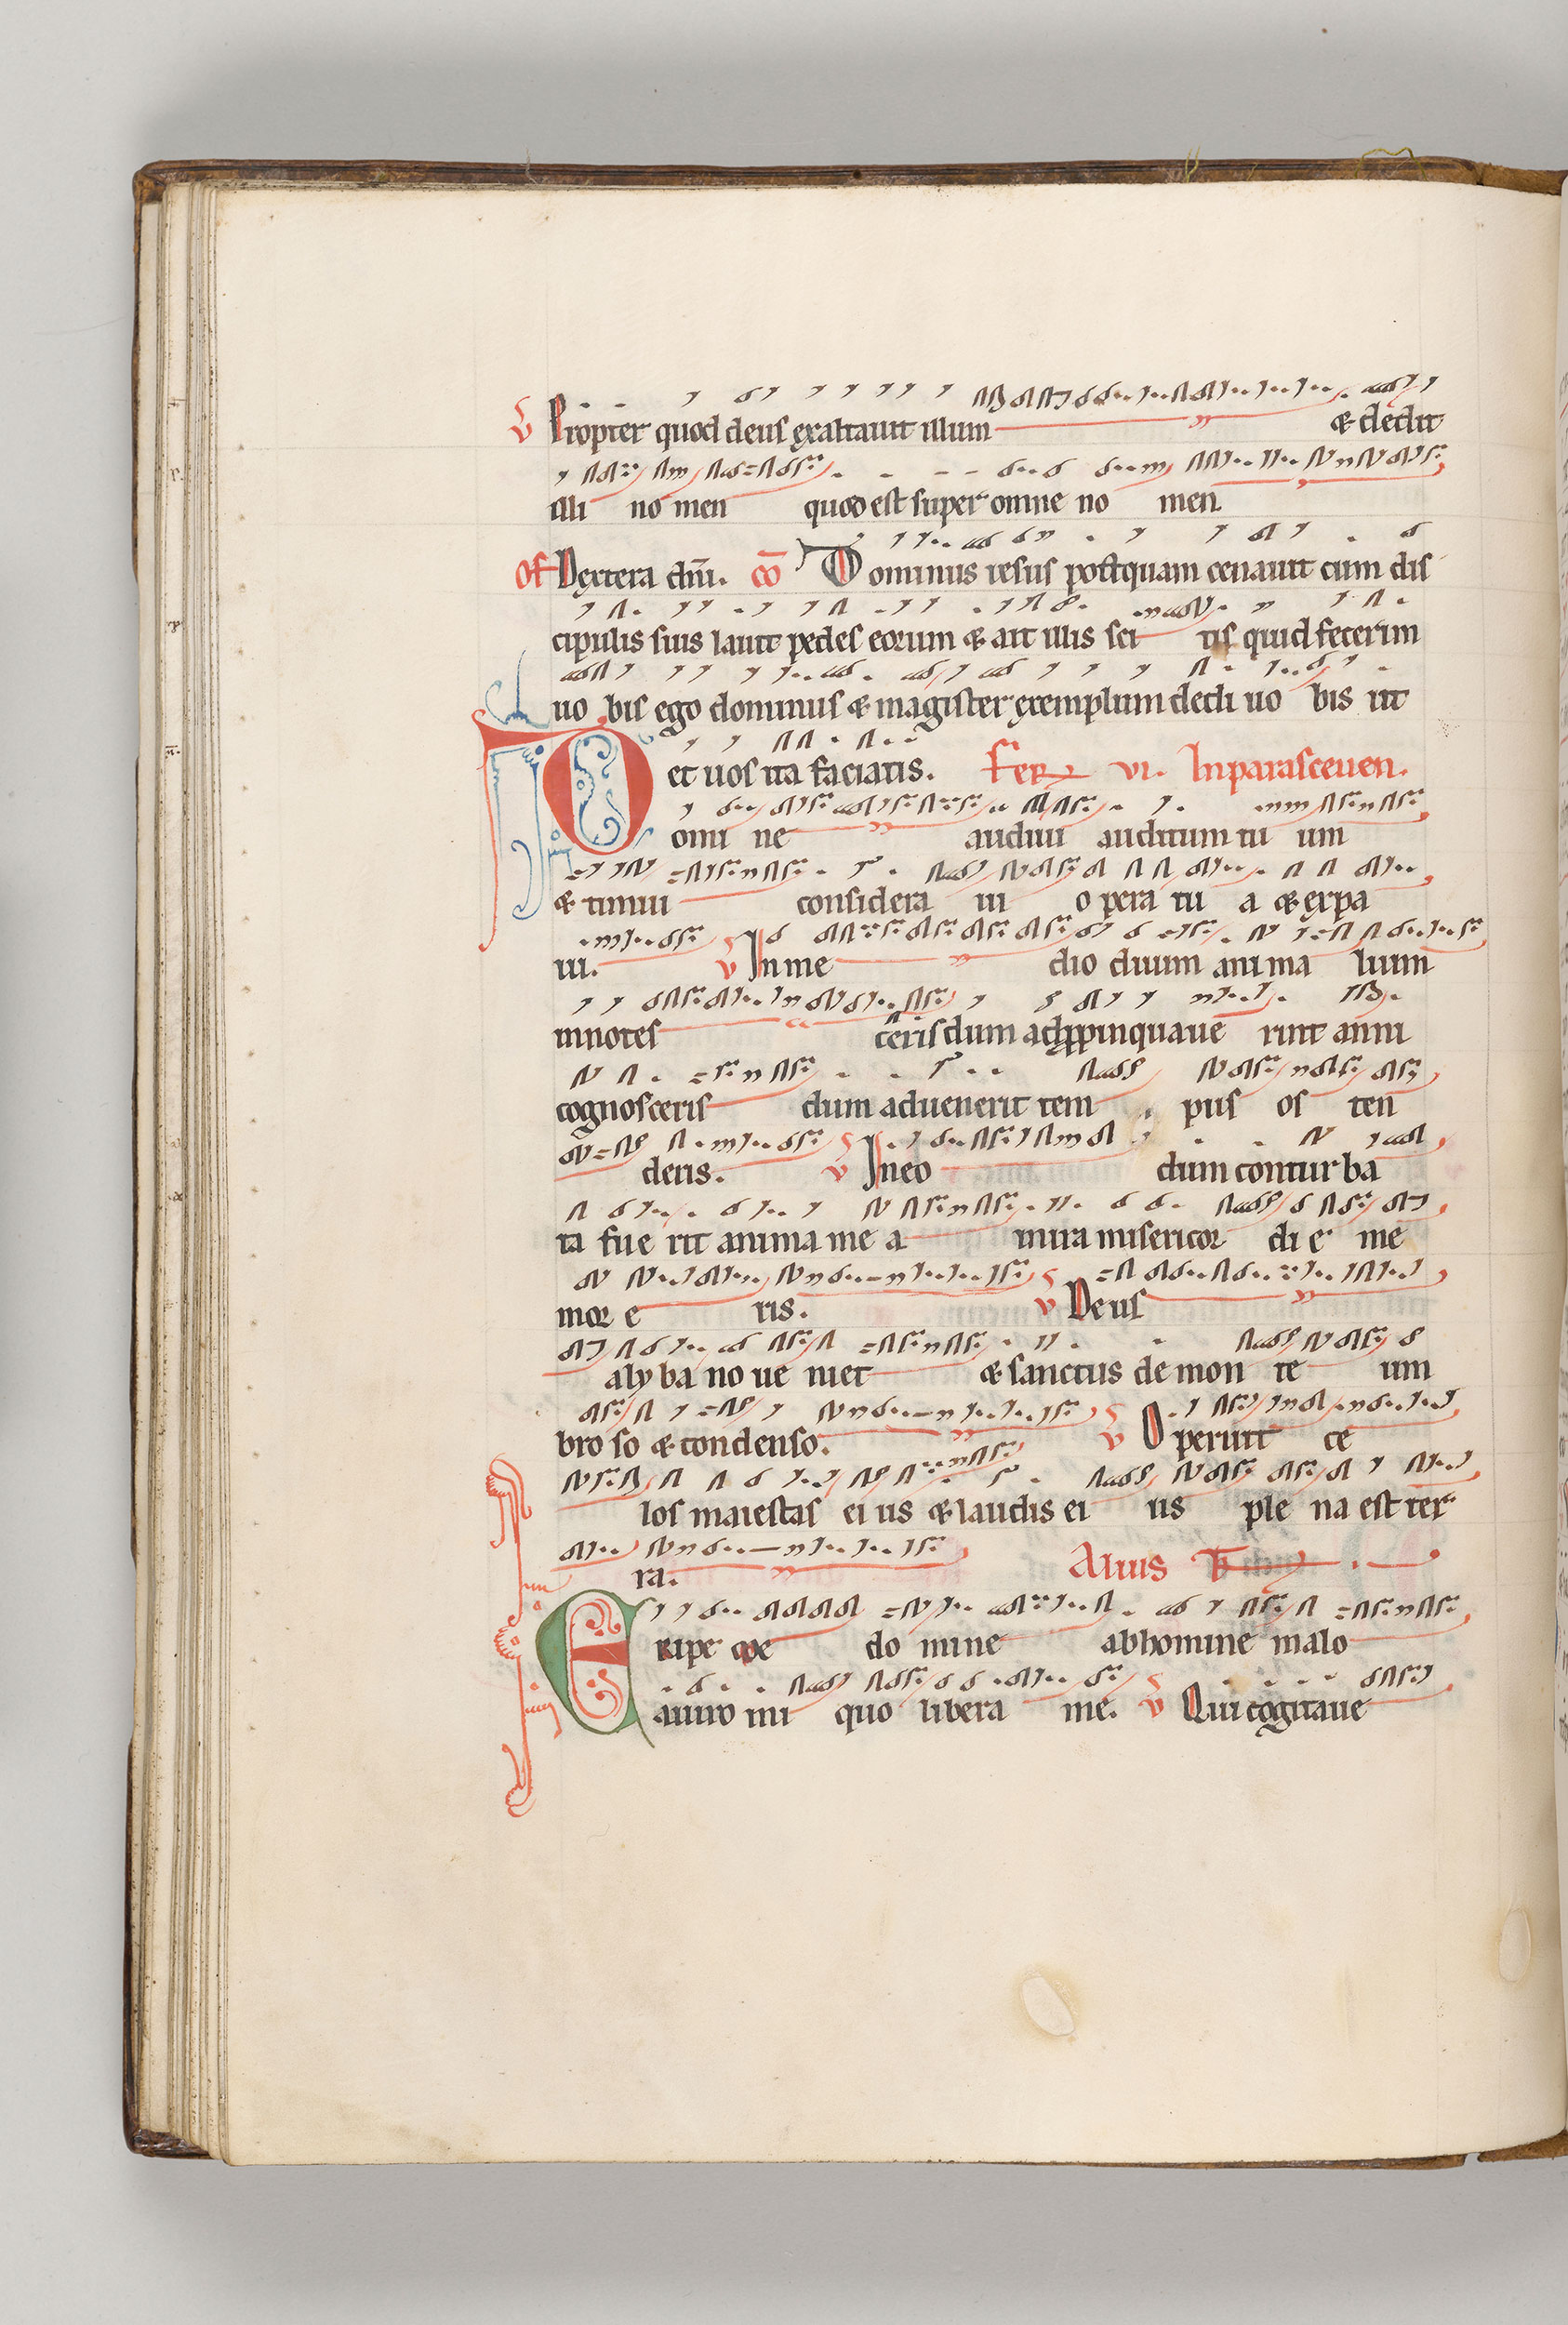 v Propter quod deus exaltauit illum & dedit
illi no men quod est super omne no men.
Of Dextera dn̄i. co Dominus iesus postquam cenauit cum dis
cipulis suis lauit pedes eorum & ait illis sci tis quid fecerim
uo bis ego dominus & magister exemplum dedi uo bis ut
et uos ita faciatis. Fer vi. In parasceuen.
Domi ne audiui auditum tu um
& timui considera ui opera tu a & expa
ui. v In me dio duum anima lium
innotes ceris dum adppinquaue rint anni
cognosceris dum aduenerit tem pus os ten
deris. v In eo dum conturba
ta fue rit anima me a in ira misericor di e me
mor e ris. v Deus
a lyba no ue niet & sanctus de mon te um
bro so & condenso. v Operuit ce
los maiestas ei us & laudis ei us ple na est ter
ra. Alius Tr
Eripe me do mine ab homine malo
a uiro ini quo libera me. v Qui cogitaue